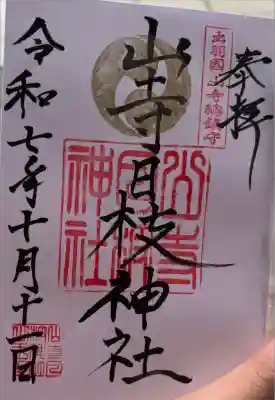 奉拝
出羽國山寺總鎮守
山寺日枝神社
山寺日枝神社
令和七年十月十一日